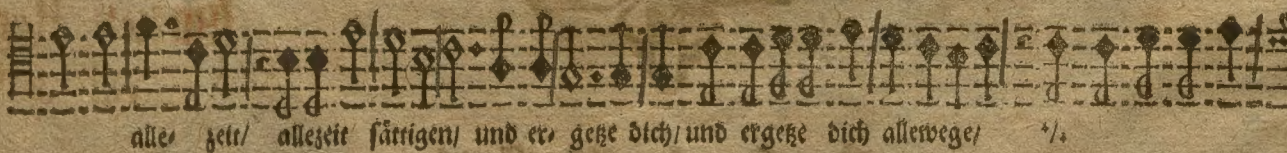 alle- zeit/ allezeit sättigen/ und er- getze dich/ und ergetze dich allewege/